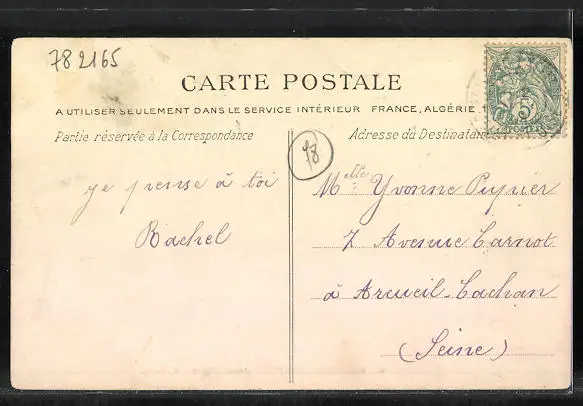 78 2165
CARTE POSTALE
A UTILISER SEULEMENT DANS LE SERVICE INTÉRIEUR FRANCE, ALGÉRIE
Partie réservée à la Correspondance
Adresse du Destinatai
78
5
POSTES
je pense à toi
Rachel
Melle Yvonne
7 Avenue Carnot
à Arcueil-Cachan
(Seine)